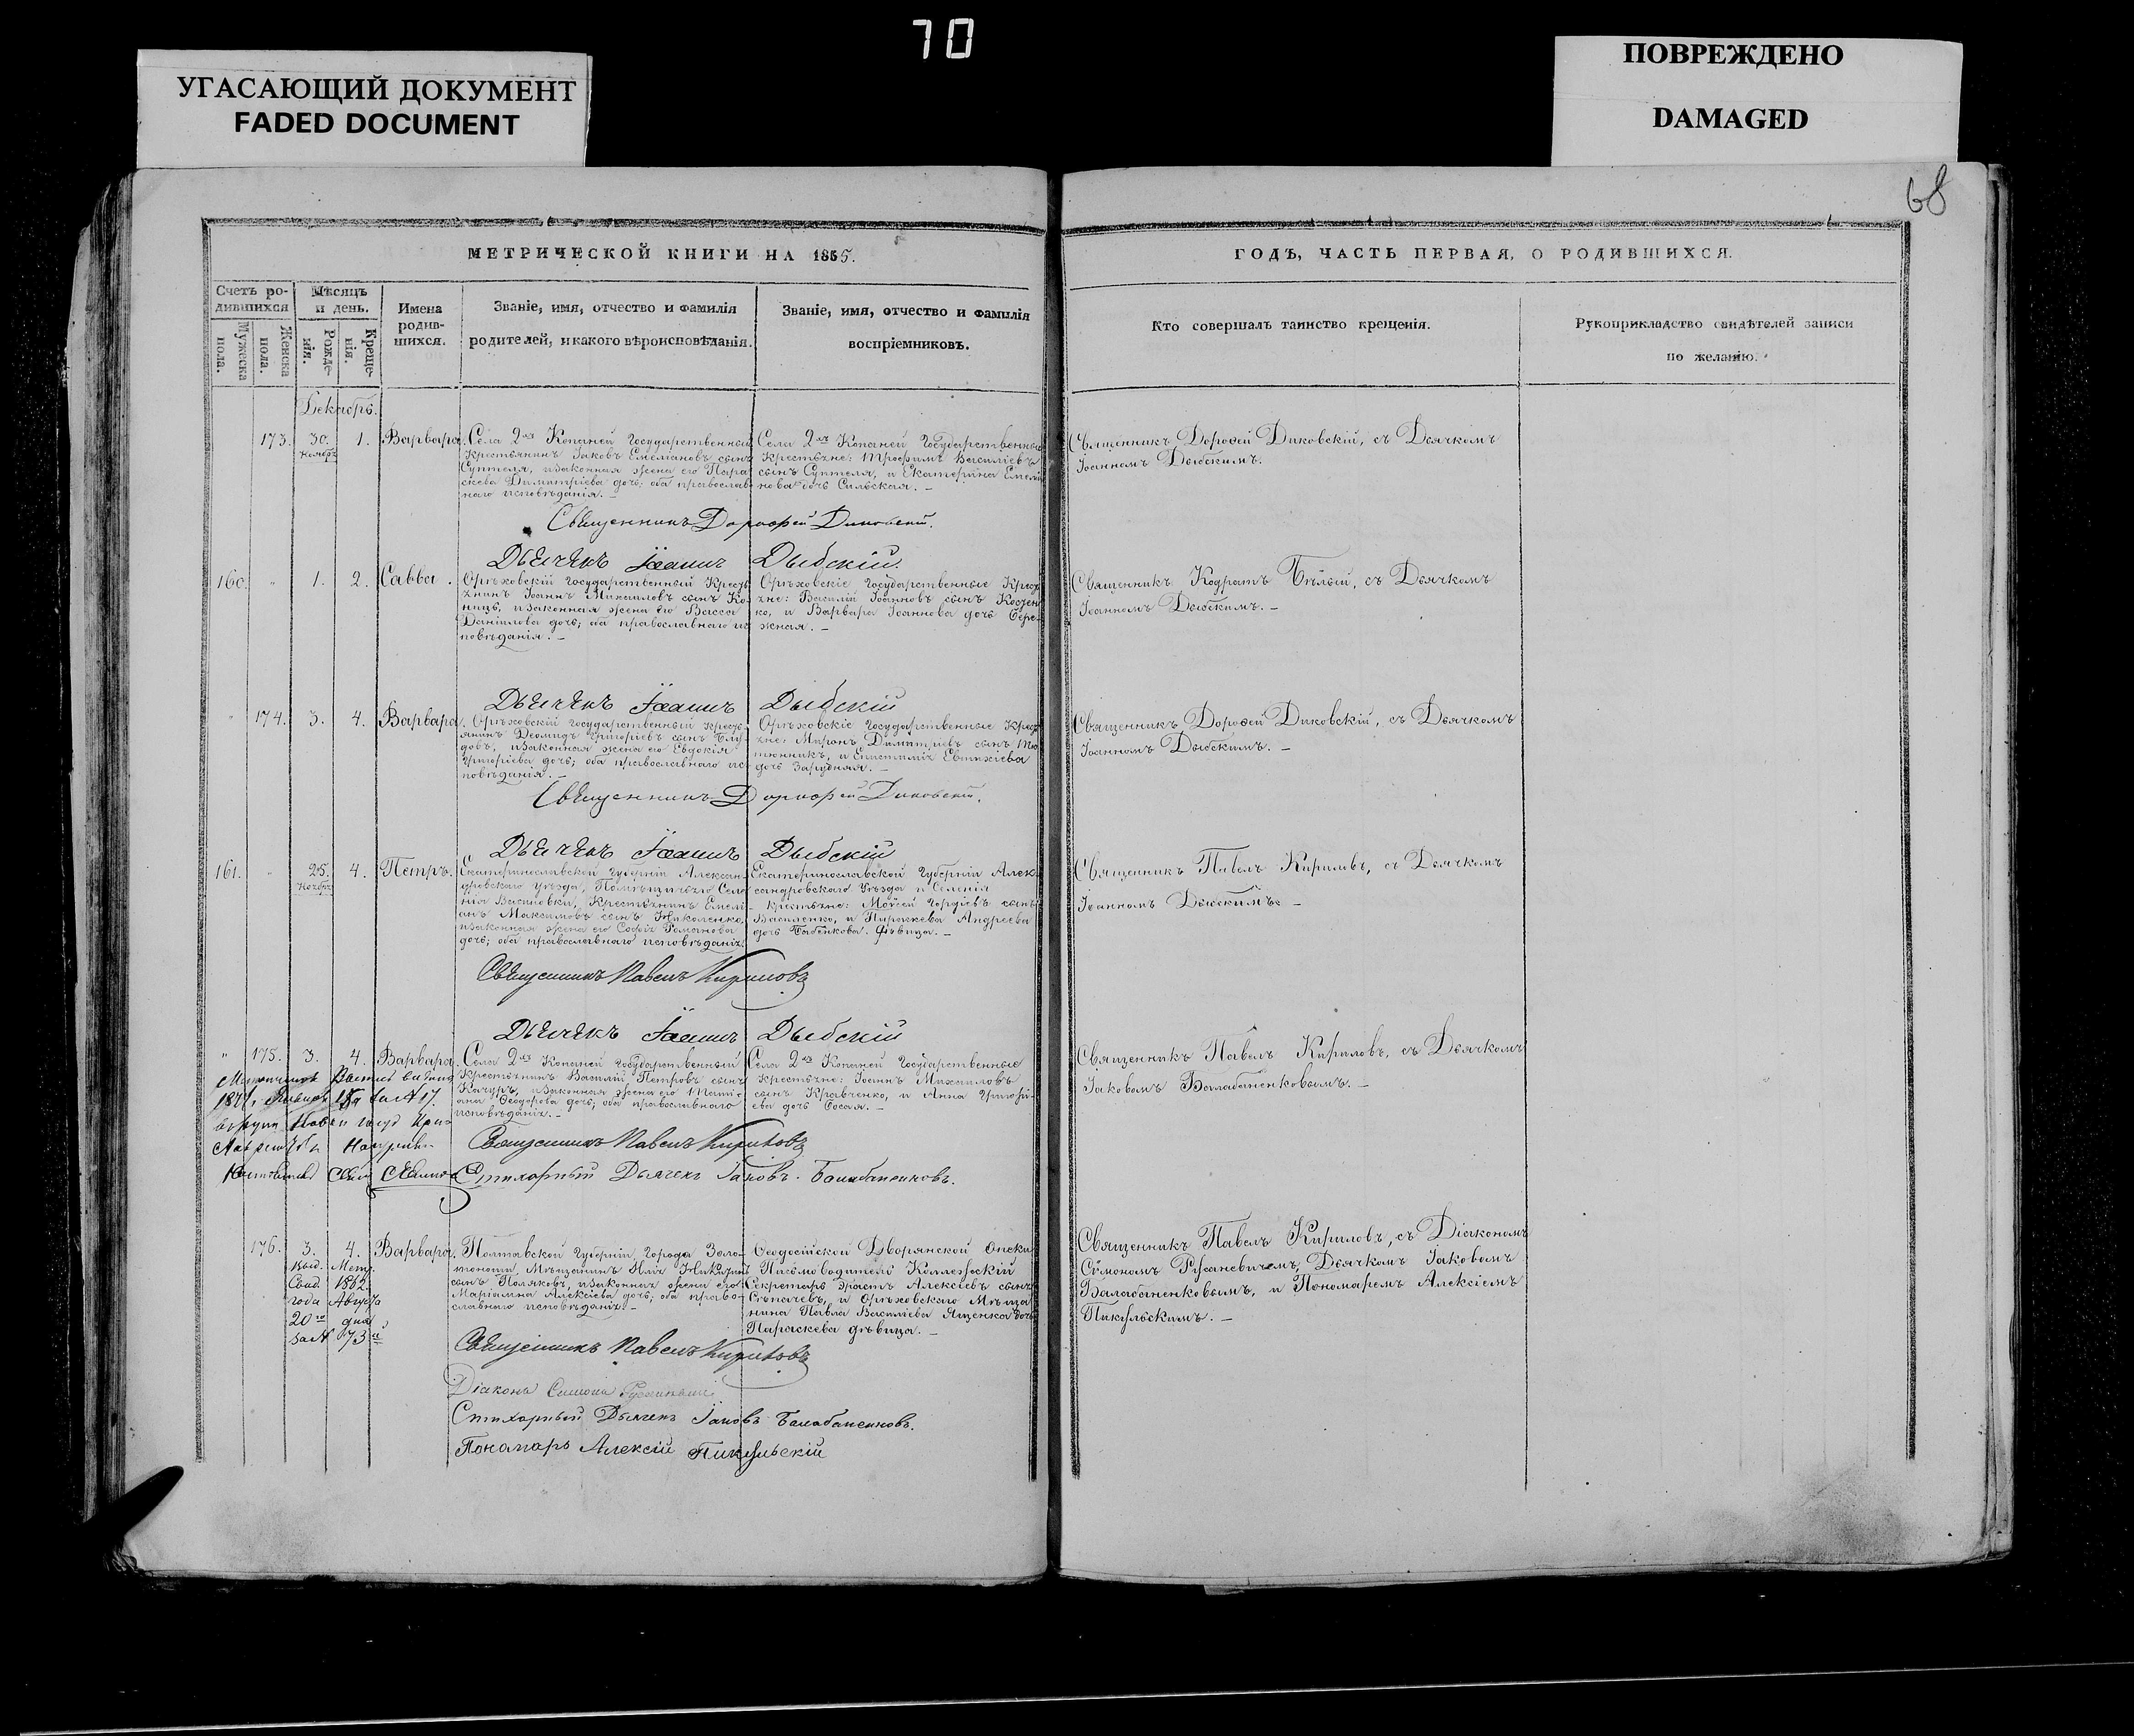 70
УГАСАЮЩИЙ ДОКУМЕНТ
FADED DOCUMENT
ПОВРЕЖДЕНО
DAMAGED
68
МЕТРИЧЕСКОЙ КНИГИ НА 1855.
ГОДЪ, ЧАСТЬ ПЕРВАЯ, О РОДИВШИХСЯ.
Счетъ ро-
дившихся
Мужеска
пола.
Женска
пола.
Мѣсяцъ
и день.
Рожде-
нія.
Креще-
нія.
Имена
родив-
шихся.
Званіе, имя, отчество и фамилія
родителей, и какого вѣроисповѣданія.
Званіе, имя, отчество и фамилія
воспріемниковъ.
Кто совершалъ таинство крещенія.
Рукоприкладство свидѣтелей записи
по желанію.
Декабрь.
173. 30. Ноябр. 1. Варвара.
Села 2хъ Копаней Государственный
Крестьянинъ Іаковъ Емеліановъ сынъ
Суптеля, и законная жена его Пара-
скева Димитріева дочь; оба православ-
наго исповѣданія. –
Села 2хъ Копаней Государственные
Крестьяне: Трофимъ Васильевъ
сынъ Суптеля, и Екатерина Емелья-
нова дочь Сильская. –
Священникъ Дороѳей Диковскій, съ Дьячкомъ
Іоанномъ Дыбскимъ.
Священникъ Дорофей Диковскій.
Дьячекъ Іоаннъ Дыбскій.
160. " 1. 2. Савва.
Орѣховскій Государственный Кресть-
янинъ Іоаннъ Михаиловъ сынъ Ко-
ницъ, и законная жена его Васса
Даніилова дочь; оба православнаго ис-
повѣданія. –
Орѣховскіе Государственные Кресть-
яне: Василій Іоанновъ сынъ Костен-
ко, и Варвара Іоаннова дочь Бере-
жная. –
Священникъ Кодратъ Бѣлый, съ Дьячкомъ
Іоанномъ Дыбскимъ. –
Дьячекъ Іоаннъ Дыбскій
" 174. 3. 4. Варвара.
Орѣховскій Государственный Кресть-
янинъ Деомидъ Григорьевъ сынъ
и законная жена его Евдокія
Григорьева дочь; оба православнаго ис-
повѣданія. –
Орѣховскіе Государственные Кресть-
яне: Миронъ Димитріевъ сынъ Тю-
тюнникъ, и Епистимія Евтихіева
дочь Зарудняя. –
Священникъ Дороѳей Диковскій, съ Дьячкомъ
Іоанномъ Дыбскимъ. –
Священникъ Дорофей Диковскій.
Дьячекъ Іоаннъ Дыбскій
161. " 25. Ноябр. 4. Петръ.
Екатеринославской Губерніи Алексан-
дровскаго Уѣзда, Помѣщичьяго Селе-
нія Васиновки, Крестьянинъ Емелі-
анъ Максимовъ сынъ Николенко,
и законная жена его Софія Романова
дочь; оба православнаго исповѣданія.
Екатеринославской Губерніи Алек-
сандровскаго Уѣзда и Селенія
– Крестьяне: Моѵсей Гордіевъ сынъ
Василенко, и Параскева Андреева
дочь Бабенкова. Дѣвица. –
Священникъ Павелъ Кириловъ, съ Дьячкомъ
Іоанномъ Дыбскимъ. –
Священникъ Павелъ Кириловъ
Дьячекъ Іоаннъ Дыбскій
" 175. 3. 4. Варвара.
Села 2хъ Копаней Государственный
Крестьянинъ Василій Петровъ сынъ
Качуръ, и законная жена его
Ѳеодорова дочь; оба православнаго
исповѣданія. –
Села 2хъ Копаней Государственные
Крестьяне: Іоаннъ Михаиловъ
сынъ Кравченко, и Анна Григорі-
ева дочь Босая. –
Священникъ Павелъ Кириловъ, съ Дьячкомъ
Іаковомъ Балабаненковымъ. –
Священникъ Павелъ Кириловъ
Стихарный Дьячекъ Іаковъ Балабаненковъ.
176. 3. 4. Варвара.
Выд. Метр.
Свид. 1862
года Августа
20го дня
за № 73й
Полтавской Губерніи, Города Золо-
тоноши, Мѣщанинъ Илія
сынъ Поляковъ, и законная жена его
Маріамна Алексіева дочь; оба право-
славнаго исповѣданія. –
Ѳеодосійской Дворянской Опеки
Письмоводитель Коллежскій
Секретарь Эрастъ Алексіевъ сынъ
и Орѣховскаго Мѣща-
нина Павла Васильева Яценка дочь
Параскева дѣвица. –
Священникъ Павелъ Кириловъ, съ Діакономъ
Сѵмономъ Русаневичемъ, Дьячкомъ Іаковомъ
Балабаненковымъ, и Пономаремъ Алексіемъ
Пикульскимъ. –
Священникъ Павелъ Кириловъ
Діаконъ Симонъ
Стихарный Дьячекъ Іаковъ Балабаненковъ.
Пономарь Алексій Пикульскій